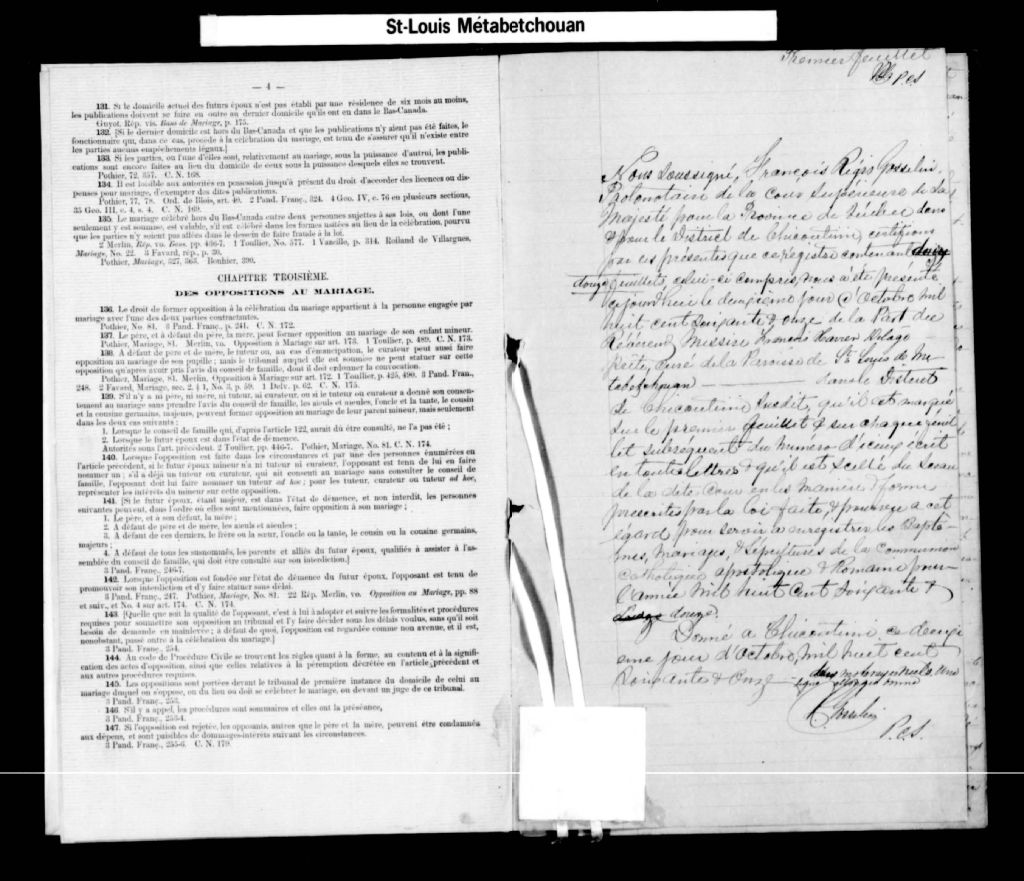 St-Louis Métabetchouan
— 4 —
131. Si le domicile actuel des futurs époux n'est pas établi par une résidence de six mois au moins,
les publications doivent se faire en outre au dernier domicile qu'ils ont eu dans le Bas-Canada.
Guyot, Rép. vis. Bans de Mariage, p. 175.
132. [Si le dernier domicile est hors du Bas-Canada et que les publications n'y aient pas été faites, le
fonctionnaire qui, dans ce cas, procède à la célébration du mariage, est tenu de s'assurer qu'il n'existe entre
les parties aucuns empêchements légaux.]
133. Si les parties, ou l'une d'elles sont, relativement au mariage, sous la puissance d'autrui, les publi-
cations sont encore faites au lieu du domicile de ceux sous la puissance desquels elles se trouvent.
Pothier, 72, 357. C. N. 168.
134. Il est loisible aux autorités en possession jusqu'à présent du droit d'accorder des licences ou dis-
penses pour mariage, d'exempter des dites publications.
Pothier, 77, 78. Ord. de Blois, art. 40. 2 Pand. Franç., 324. 4 Geo. IV, c. 76 en plusieurs sections,
35 Geo. III, c. 4, s. 4. C. N. 169.
135. Le mariage célébré hors du Bas-Canada entre deux personnes sujettes à ses lois, ou dont l'une
seulement y est soumise, est valable, s'il est célébré dans les formes usitées au lieu de la célébration, pourvu
que les parties n'y soient pas allées dans le dessein de faire fraude à la loi.
2 Merlin, Rép. vo. Bans, pp. 466-7. 1 Toullier, No. 577. 1 Vaneille, p. 314. Rolland de Villargues,
Mariage, No. 22. 3 Favard, rép., p. 30.
Pothier, Mariage, 327, 363. Bouhier, 390.
CHAPITRE TROISIÈME.
DES OPPOSITIONS AU MARIAGE.
136. Le droit de former opposition à la célébration du mariage appartient à la personne engagée par
mariage avec l'une des deux parties contractantes.
Pothier, No. 81. 3 Pand. Franç., p. 241. C. N. 172.
137. Le père, et à défaut du père, la mère, peut former opposition au mariage de son enfant mineur.
Pothier, Mariage, 81. Merlin, vo. Opposition à Mariage sur art. 173. 1 Toullier, p. 489. C. N. 173.
138. A défaut de père et de mère, le tuteur ou, au cas d'émancipation, le curateur peut aussi faire
opposition au mariage de son pupille; mais le tribunal auquel elle est soumise ne peut statuer sur cette
opposition qu'après avoir pris l'avis du conseil de famille, dont il doit ordonner la convocation.
Pothier, Mariage, 81. Merlin, Opposition à Mariage sur art. 172. 1 Toullier, p. 425, 490. 3 Pand. Fran.,
248. 2 Favard, Mariage, sec. 2. § 1, No. 3, p. 59. 1 Delv. p. 62. C. N. 175.
139. S'il n'y a ni père, ni mère, ni tuteur, ni curateur, ou si le tuteur ou curateur a donné son consen-
tement au mariage sans prendre l'avis du conseil de famille, les aïeuls et aïeules, l'oncle et la tante, le cousin
et la cousine germains, majeurs, peuvent former opposition au mariage de leur parent mineur, mais seulement
dans les deux cas suivants;
1. Lorsque le conseil de famille qui, d'après l'article 122, aurait dû être consulté, ne l'a pas été;
2. Lorsque le futur époux est dans l'état de démence.
Autorités sous l'art. précédent. 2 Toullier, pp. 446-7. Pothier, Mariage, No. 81. C. N. 174.
140. Lorsque l'opposition est faite dans les circonstances et par une des personnes énumérées en
l'article précédent, si le futur époux mineur n'a ni tuteur ni curateur, l'opposant est tenu de lui en faire
nommer un; s'il a déjà un tuteur ou curateur, qui ait consenti au mariage sans consulter le conseil de
famille, l'opposant doit lui faire nommer un tuteur ad hoc; pour les tuteur, curateur ou tuteur ad hoc,
représenter les intérêts du mineur sur cette opposition.
141. [Si le futur époux, étant majeur, est dans l'état de démence, et non interdit, les personnes
suivantes peuvent, dans l'ordre où elles sont mentionnées, faire opposition à son mariage;
1. Le père, et à son défaut, la mère;
2. A défaut de père et de mère, les aïeuls et aïeules;
3. A défaut de ces derniers, le frère ou la sœur, l'oncle ou la tante, le cousin ou la cousine germains,
majeurs;
4. A défaut de tous les susnommés, les parents et alliés du futur époux, qualifiés à assister à l'as-
semblée du conseil de famille, qui doit être consulté sur son interdiction.]
3 Pand. Franç., 246-7.
142. Lorsque l'opposition est fondée sur l'état de démence du futur époux, l'opposant est tenu de
promouvoir son interdiction et d'y faire statuer sans délai.
3 Pand. Franç., 247. Pothier, Mariage, No. 81. 22 Rép. Merlin, vo. Opposition au Mariage, pp. 88
et suiv., et No. 4 sur art. 174. C. N. 174.
143. [Quelle que soit la qualité de l'opposant, c'est à lui à adopter et suivre les formalités et procédures
requises pour soumettre son opposition au tribunal et l'y faire décider sous les délais voulus, sans qu'il soit
besoin de demande en mainlevée; à défaut de quoi, l'opposition est regardée comme non avenue, et il est,
nonobstant, passé outre à la célébration du mariage.]
3 Pand. Franç., 254.
144. Au code de Procédure Civile se trouvent les règles quant à la forme, au contenu et à la signifi-
cation des actes d'opposition, ainsi que celles relatives à la péremption décrétée en l'article précédent et
aux autres procédures requises.
145. Les oppositions sont portées devant le tribunal de première instance du domicile de celui au
mariage duquel on s'oppose, ou du lieu où doit se célébrer le mariage, ou devant un juge de ce tribunal.
3 Pand. Franç., 253.
146. S'il y a appel, les procédures sont sommaires et elles ont la préséance,
3 Pand. Franç., 253-4.
147. Si l'opposition est rejetée, les opposants, autres que le père et la mère, peuvent être condamnés
aux dépens, et sont passibles de dommages-intérêts suivant les circonstances.
3 Pand. Franç., 255-6. C. N. 179.
Premier feuillet
P.C.S.
Nous Soussigné, François Régis Gosselin,
Protonotaire de la Cour Supérieure de Sa
Majesté pour la Province de Québec dans
& pour le District de Chicoutimi, certifions
par ces présentes que ce registre contenant
douze feuillets, celui-ci compris, nous a été présenté
cejourd'hui le deuxième jour d'Octobre mil
huit cent soixante & onze de la Part du
Révérend Messire François Xavier Delâge
Prêtre, Curé de la Paroisse de St Louis de Mé-
tabetchouan — dans le District
de Chicoutimi susdit, qu'il est marqué
sur le premier feuillet & sur chaque feuil
let subséquent du numéro d'iceux écrit
en toutes lettres & qu'il est scellé du Sceau
de la dite Cour en la manière & forme
prescrites par la loi faite & pourvue à cet
égard pour servir à enregistrer les Baptê-
mes, Mariages, & Sépultures de la Communion
Catholique apostolique & Romaine pour
l'année mil huit cent soixante &
douze.
Donné à Chicoutimi, ce deuxi
ème jour d'Octobre, mil huit cent
soixante & onze —
Gosselin
P.C.S.